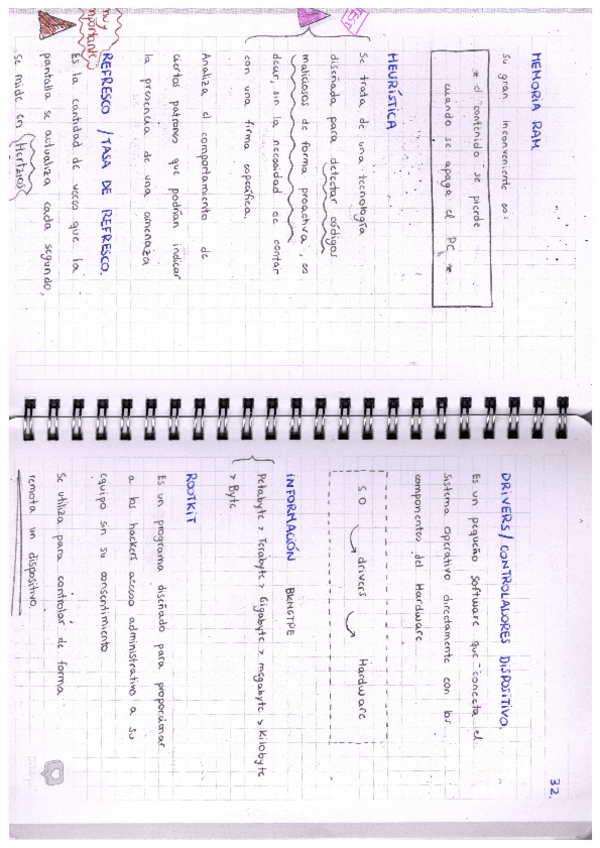 MEMORIA RAM
su gran inconveniente es:
* el contenido se pierde
cuando se apaga el PC *
HEURÍSTICA
Se trata de una tecnología
diseñada para detectar códigos
maliciosos de forma proactiva, es
decir, sin la necesidad de contar
con una firma específica.
Analiza el comportamiento de
ciertos patrones que podrían indicar
la presencia de una amenaza
muy
importante
REFRESCO / TASA DE REFRESCO.
Es la cantidad de veces que la
pantalla se actualiza cada segundo,
se mide en (Hertzios)
32.
DRIVERS / CONTROLADORES DISPOSITIVO.
Es un pequeño software que conecta el
Sistema operativo directamente con los
componentes del Hardware
S.O → drivers → Hardware
INFORMACIÓN BKMGTPE
Petabyte > Terabyte > Gigabyte > megabyte > Kilobyte
> Byte
ROOTKIT
Es un programa diseñado para proporcionar
a los hackers acceso administrativo a su
equipo sin su consentimiento
Se utiliza para controlar de forma
remota un dispositivo.